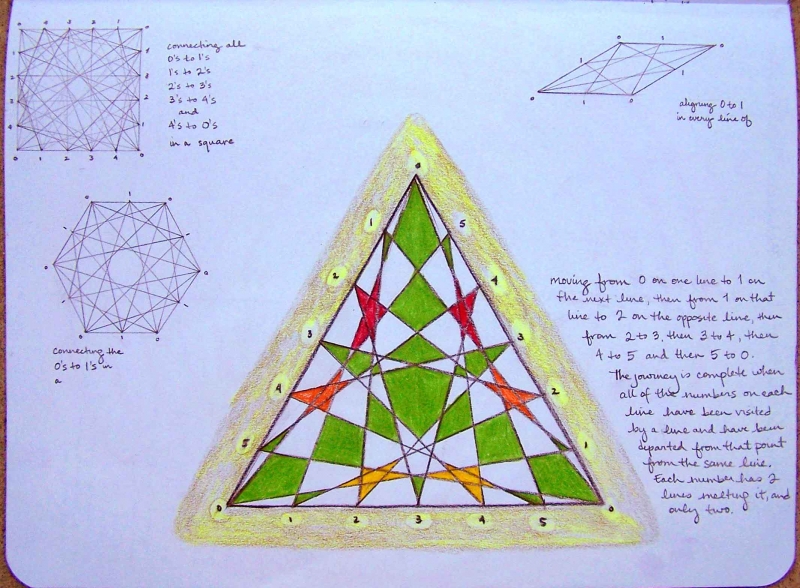 0 4 3 2 1 0
connecting all
0's to 1's
1's to 2's
2's to 3's
3's to 4's
and
4's to 0's
in a square
1 2 3 4
4 3 2 1
0 1 2 3 4 0
0 1 0
aligning 0 to 1
in every line of
0 1 0
0 0
0 1 0
connecting the
0's to 1's in
a
0
1 5
2 4
3 3
4 2
5 1
0 1 2 3 4 5 0
moving from 0 on one line to 1 on
the next line, then from 1 on that
line to 2 on the opposite line, then
from 2 to 3, then 3 to 4, then
4 to 5 and then 5 to 0.
The journey is complete when
all of the numbers on each
line have been visited
by a line and have been
departed from that point
from the same line.
Each number has 2
lines meeting it, and
only two.